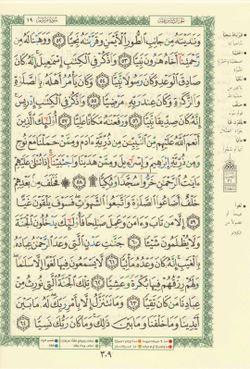 ١٩
وَنَٰدَيْنَٰهُ مِن جَانِبِ ٱلطُّورِ ٱلْأَيْمَنِ وَقَرَّبْنَٰهُ نَجِيًّا ٥٢ وَوَهَبْنَا لَهُۥ مِن
رَّحْمَتِنَآ أَخَاهُ هَٰرُونَ نَبِيًّا ٥٣ وَٱذْكُرْ فِى ٱلْكِتَٰبِ إِسْمَٰعِيلَ إِنَّهُۥ كَانَ
صَادِقَ ٱلْوَعْدِ وَكَانَ رَسُولًا نَّبِيًّا ٥٤ وَكَانَ يَأْمُرُ أَهْلَهُۥ بِٱلصَّلَوٰةِ
وَٱلزَّكَوٰةِ وَكَانَ عِندَ رَبِّهِۦ مَرْضِيًّا ٥٥ وَٱذْكُرْ فِى ٱلْكِتَٰبِ إِدْرِيسَ
إِنَّهُۥ كَانَ صِدِّيقًا نَّبِيًّا ٥٦ وَرَفَعْنَٰهُ مَكَانًا عَلِيًّا ٥٧ أُو۟لَٰٓئِكَ ٱلَّذِينَ
أَنْعَمَ ٱللَّهُ عَلَيْهِم مِّنَ ٱلنَّبِيِّۦنَ مِن ذُرِّيَّةِ ءَادَمَ وَمِمَّنْ حَمَلْنَا مَعَ نُوحٍ
وَمِن ذُرِّيَّةِ إِبْرَٰهِيمَ وَإِسْرَٰٓءِيلَ وَمِمَّنْ هَدَيْنَا وَٱجْتَبَيْنَآ إِذَا تُتْلَىٰ عَلَيْهِمْ
ءَايَٰتُ ٱلرَّحْمَٰنِ خَرُّوا۟ سُجَّدًا وَبُكِيًّا ۩ ٥٨ فَخَلَفَ مِنۢ بَعْدِهِمْ
خَلْفٌ أَضَاعُوا۟ ٱلصَّلَوٰةَ وَٱتَّبَعُوا۟ ٱلشَّهَوَٰتِ فَسَوْفَ يَلْقَوْنَ غَيًّا
٥٩ إِلَّا مَن تَابَ وَءَامَنَ وَعَمِلَ صَٰلِحًا فَأُو۟لَٰٓئِكَ يَدْخُلُونَ ٱلْجَنَّةَ
وَلَا يُظْلَمُونَ شَيْـًٔا ٦٠ جَنَّٰتِ عَدْنٍ ٱلَّتِى وَعَدَ ٱلرَّحْمَٰنُ عِبَادَهُۥ
بِٱلْغَيْبِ إِنَّهُۥ كَانَ وَعْدُهُۥ مَأْتِيًّا ٦١ لَّا يَسْمَعُونَ فِيهَا لَغْوًا إِلَّا سَلَٰمًا
وَلَهُمْ رِزْقُهُمْ فِيهَا بُكْرَةً وَعَشِيًّا ٦٢ تِلْكَ ٱلْجَنَّةُ ٱلَّتِى نُورِثُ مِنْ
عِبَادِنَا مَن كَانَ تَقِيًّا ٦٣ وَمَا نَتَنَزَّلُ إِلَّا بِأَمْرِ رَبِّكَ لَهُۥ مَا بَيْنَ
أَيْدِينَا وَمَا خَلْفَنَا وَمَا بَيْنَ ذَٰلِكَ وَمَا كَانَ رَبُّكَ نَسِيًّا ٦٤
٣٠٩